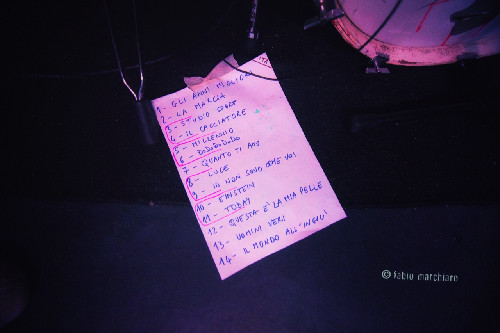 1- GLI ANNI MIGLIORI
2- LA MARCIA
3- STUDIO SPORT
4- IL CACCIATORE
5- MILLENNIO
6- DODODODODO
7- QUANTO TI AMO
8- LUCE
9- IO NON SONO COME VOI
10- EINSTEIN
11- TODAY
12- QUESTA È LA MIA PELLE
13- UOMINI VERI
14- IL MONDO ALL'INGIÙ
© fabio marchiaro